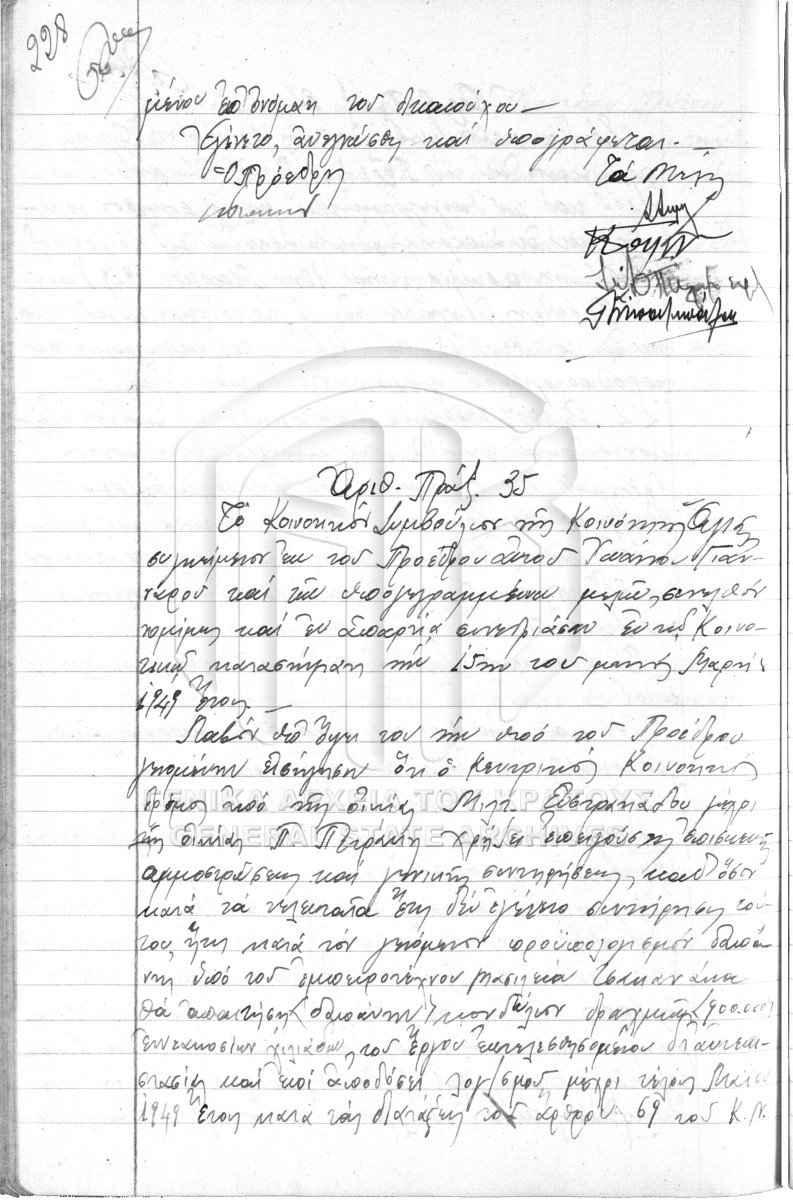 228
μένου ἐπ' ὀνόματι τοῦ δικαιούχου —
Ἐγένετο, ἀνεγνώσθη καὶ ὑπογράφεται. —
Ὁ Πρόεδρος Τὰ Μέλη
Ἀριθ. Πράξ. 35
Τὸ Κοινοτικὸν Συμβούλιον τῆς Κοινότητος
συγκείμενον ἐκ τοῦ Προέδρου αὐτοῦ Γιαν-
νάρου καὶ τῶν ὑπογεγραμμένων μελῶν, συνελθὸν
νομίμως καὶ ἐν ἀπαρτίᾳ συνεδρίασεν ἐν τῷ Κοινο-
τικῷ καταστήματι τὴν 15ην τοῦ μηνὸς Μαρτίου
1949 ἔτους. —
Λαβὸν ὑπ' ὄψει του τὴν ὑπὸ τοῦ Προέδρου
γενομένην εἰσήγησιν ὅτι ὁ κεντρικὸς Κοινοτικὸς
δρόμος ἀπὸ τῆς οἰκίας Μιλτ. Εὐστρατιάδου μέχρι
τῆς οἰκίας Π. Πετράκη χρήζει ἐπειγούσης ἐπισκευῆς
ἀμμοστρώσεως καὶ γενικῆς συντηρήσεως, καθ' ὅσον
κατὰ τὰ τελευταῖα ἔτη δὲν ἐγένετο συντήρησις τού-
του, ἥτις κατὰ τὸν γενόμενον προϋπολογισμὸν δαπά-
νης ὑπὸ τοῦ ἐμπειροτέχνου Βασιλείου Τσακανάκα
θὰ ἀπαιτήσῃ δαπάνην κονδύλιον δραχμῶν (900.000)
ἐννεακοσίων χιλιάδων, τοῦ ἔργου ἐκτελεσθησομένου δι' αὐτεπι-
στασίας καὶ ἐπὶ ἀποδόσει λογ/σμοῦ μέχρι τέλους Μαΐου
1949 ἔτους κατὰ τὰς διατάξεις τοῦ ἄρθρου 69 τοῦ Κ.Ν.
ΓΕΝΙΚΑ ΑΡΧΕΙΑ ΤΟΥ ΚΡΑΤΟΥΣ
GENERAL STATE ARCHIVES